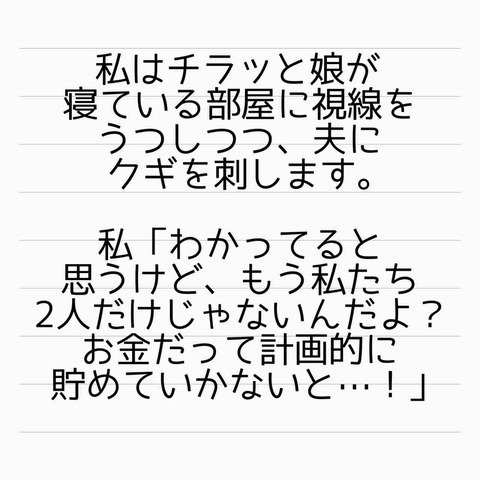 私はチラッと娘が
寝ている部屋に視線を
うつしつつ、夫に
クギを刺します。
私「わかってると
思うけど、もう私たち
2人だけじゃないんだよ？
お金だって計画的に
貯めていかないと…！」